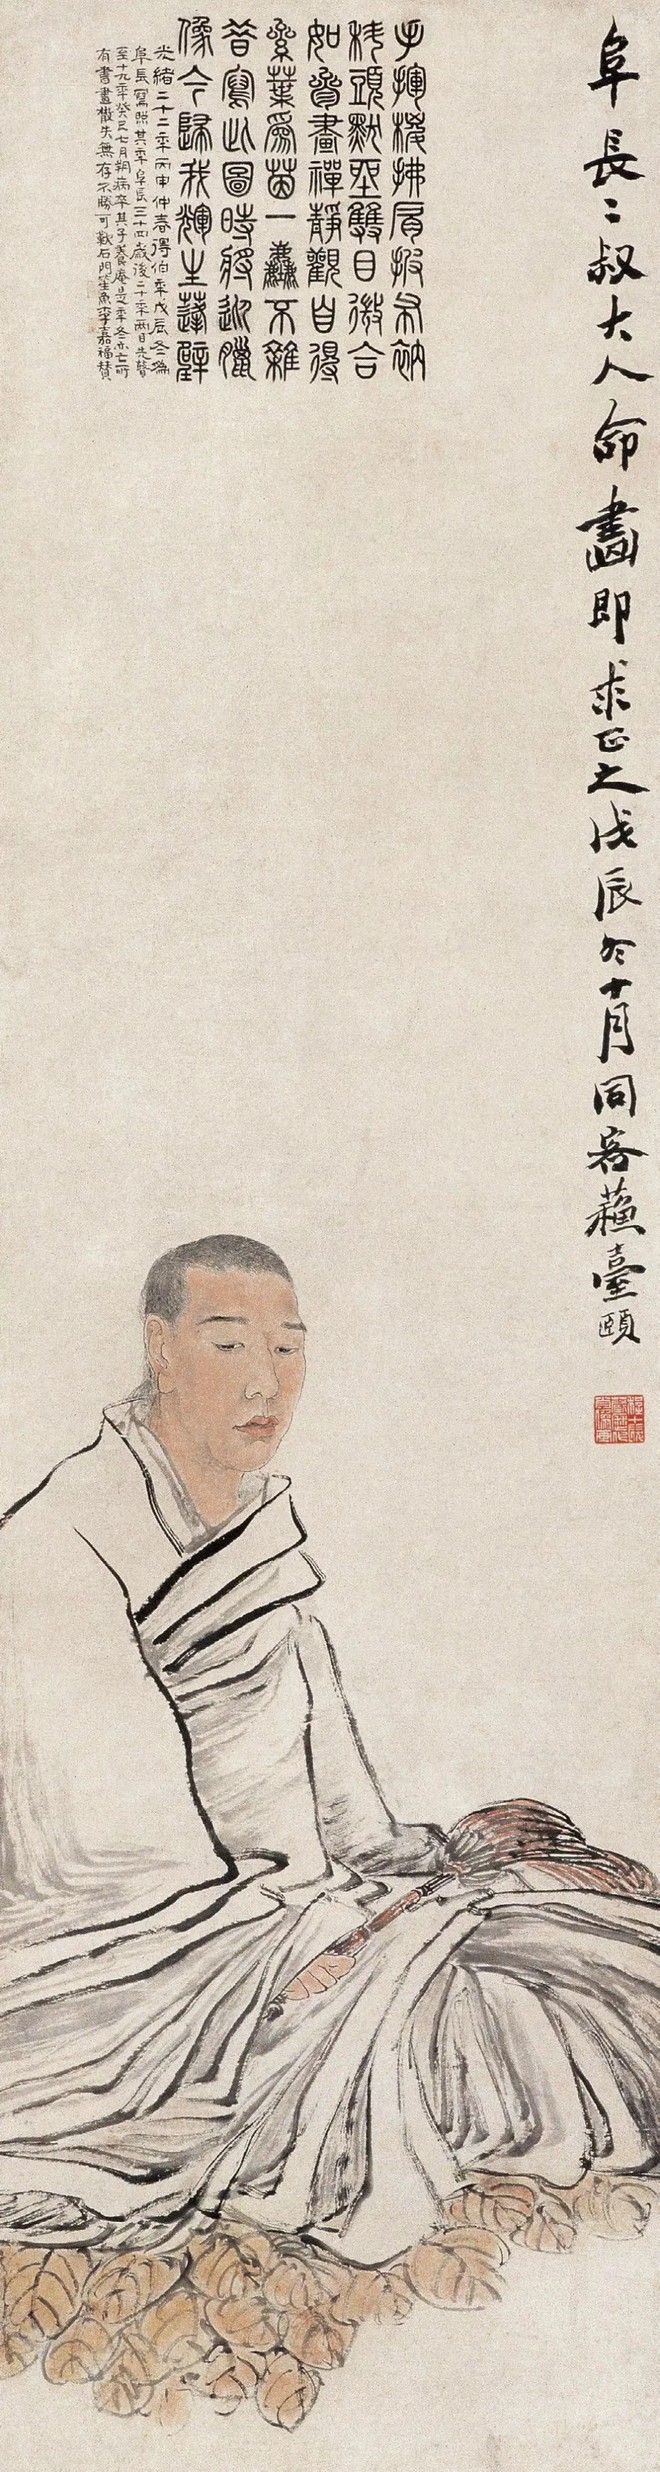 阜長二叔大人命畫即求正之戊辰冬十月同客蘓臺頤
手揮椶拂肩披布衲
秃頭黝堊雙目微合
如參畫禪靜觀自得
絫葉爲茵一塵不雜
昔寫此圖時將迎臘
像今歸我輝生蓬壁
光緒二十二年丙申仲春得伯年戊辰冬爲
阜長寫照其年阜長三十四歲後二十年兩目先瞽
至十九年癸巳七月朔病卒其子養庵是年冬亦亡所
有書畫散失無存不勝可歎石門笙魚李嘉福贊